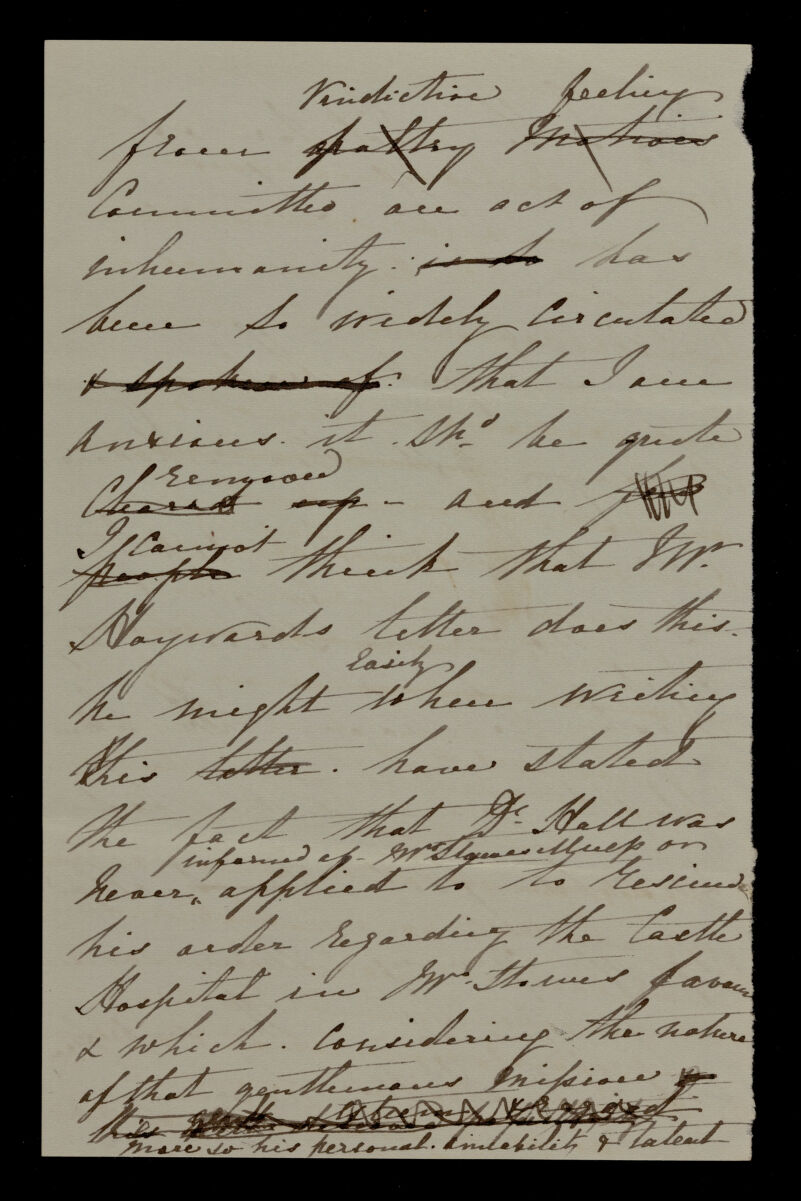 Vindictive feeling
from paltry Motives
Committed an act of
inhumanity. is so has
been so widely circulated
& spoken of. that I am
anxious. it. Shd. be quite
removed
Cleared up - and
I cannot
people think that Mr.
Haywards letter does this.
Easily
he might when writing
this letter. have stated
the fact that Dr. Hall was
informed of Mr Stowes illness or
Never, applied to to rescind
his order regarding the Castle
Hospital in Mr. Stowes favour
& which. Considering the nature
of that gentlemans Mission
this
more so his personal. amiability & talent